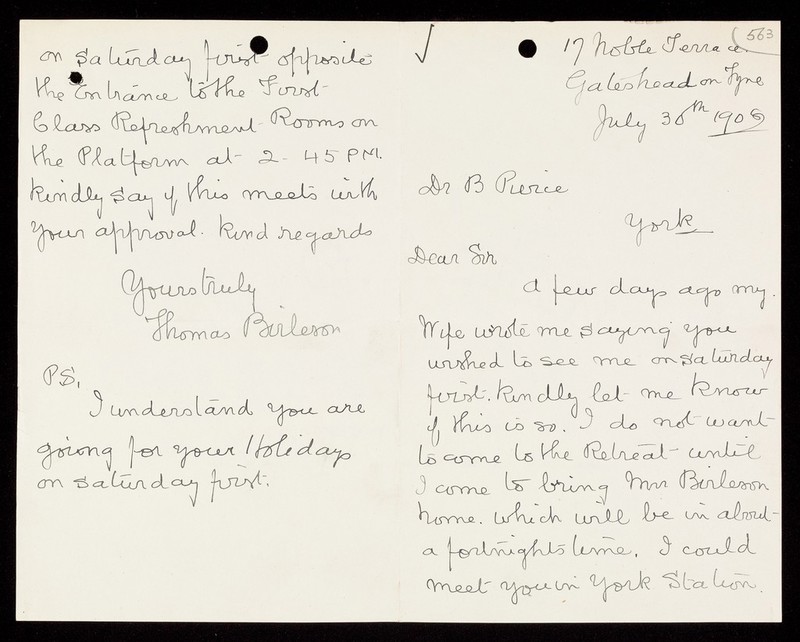 563
17 Noble Terrace
Gateshead on Tyne
July 30th 1905
Dr B Pierce
York
Dear Sir
A few days ago my
Wife wrote me saying you
wished to see me on Saturday
first. kindly let me know
if this is so. I do not want
to come to the Retreat until
I come to bring Mrs Birleson
home. which will be in about
a fortnights time. I could
meet you in York Station.
on Saturday first opposite
the Entrance to the First
Class Refreshment Rooms on
the Platform at 2-45 PM.
kindly say if this meets with
your approval. kind regards
Yours truly
Thomas Birleson
PS,
I understand you are
going for your Holidays
on Saturday first.